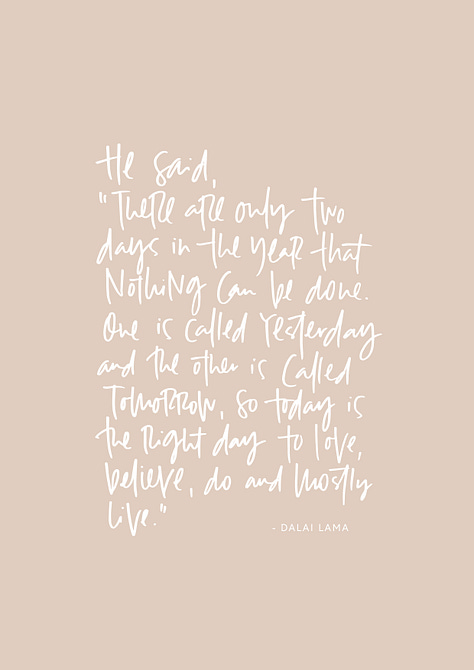 He said,
"There are only two
days in the year that
Nothing can be done.
One is called Yesterday
and the other is called
Tomorrow, so today is
the right day to love,
believe, do and mostly
live."
- DALAI LAMA